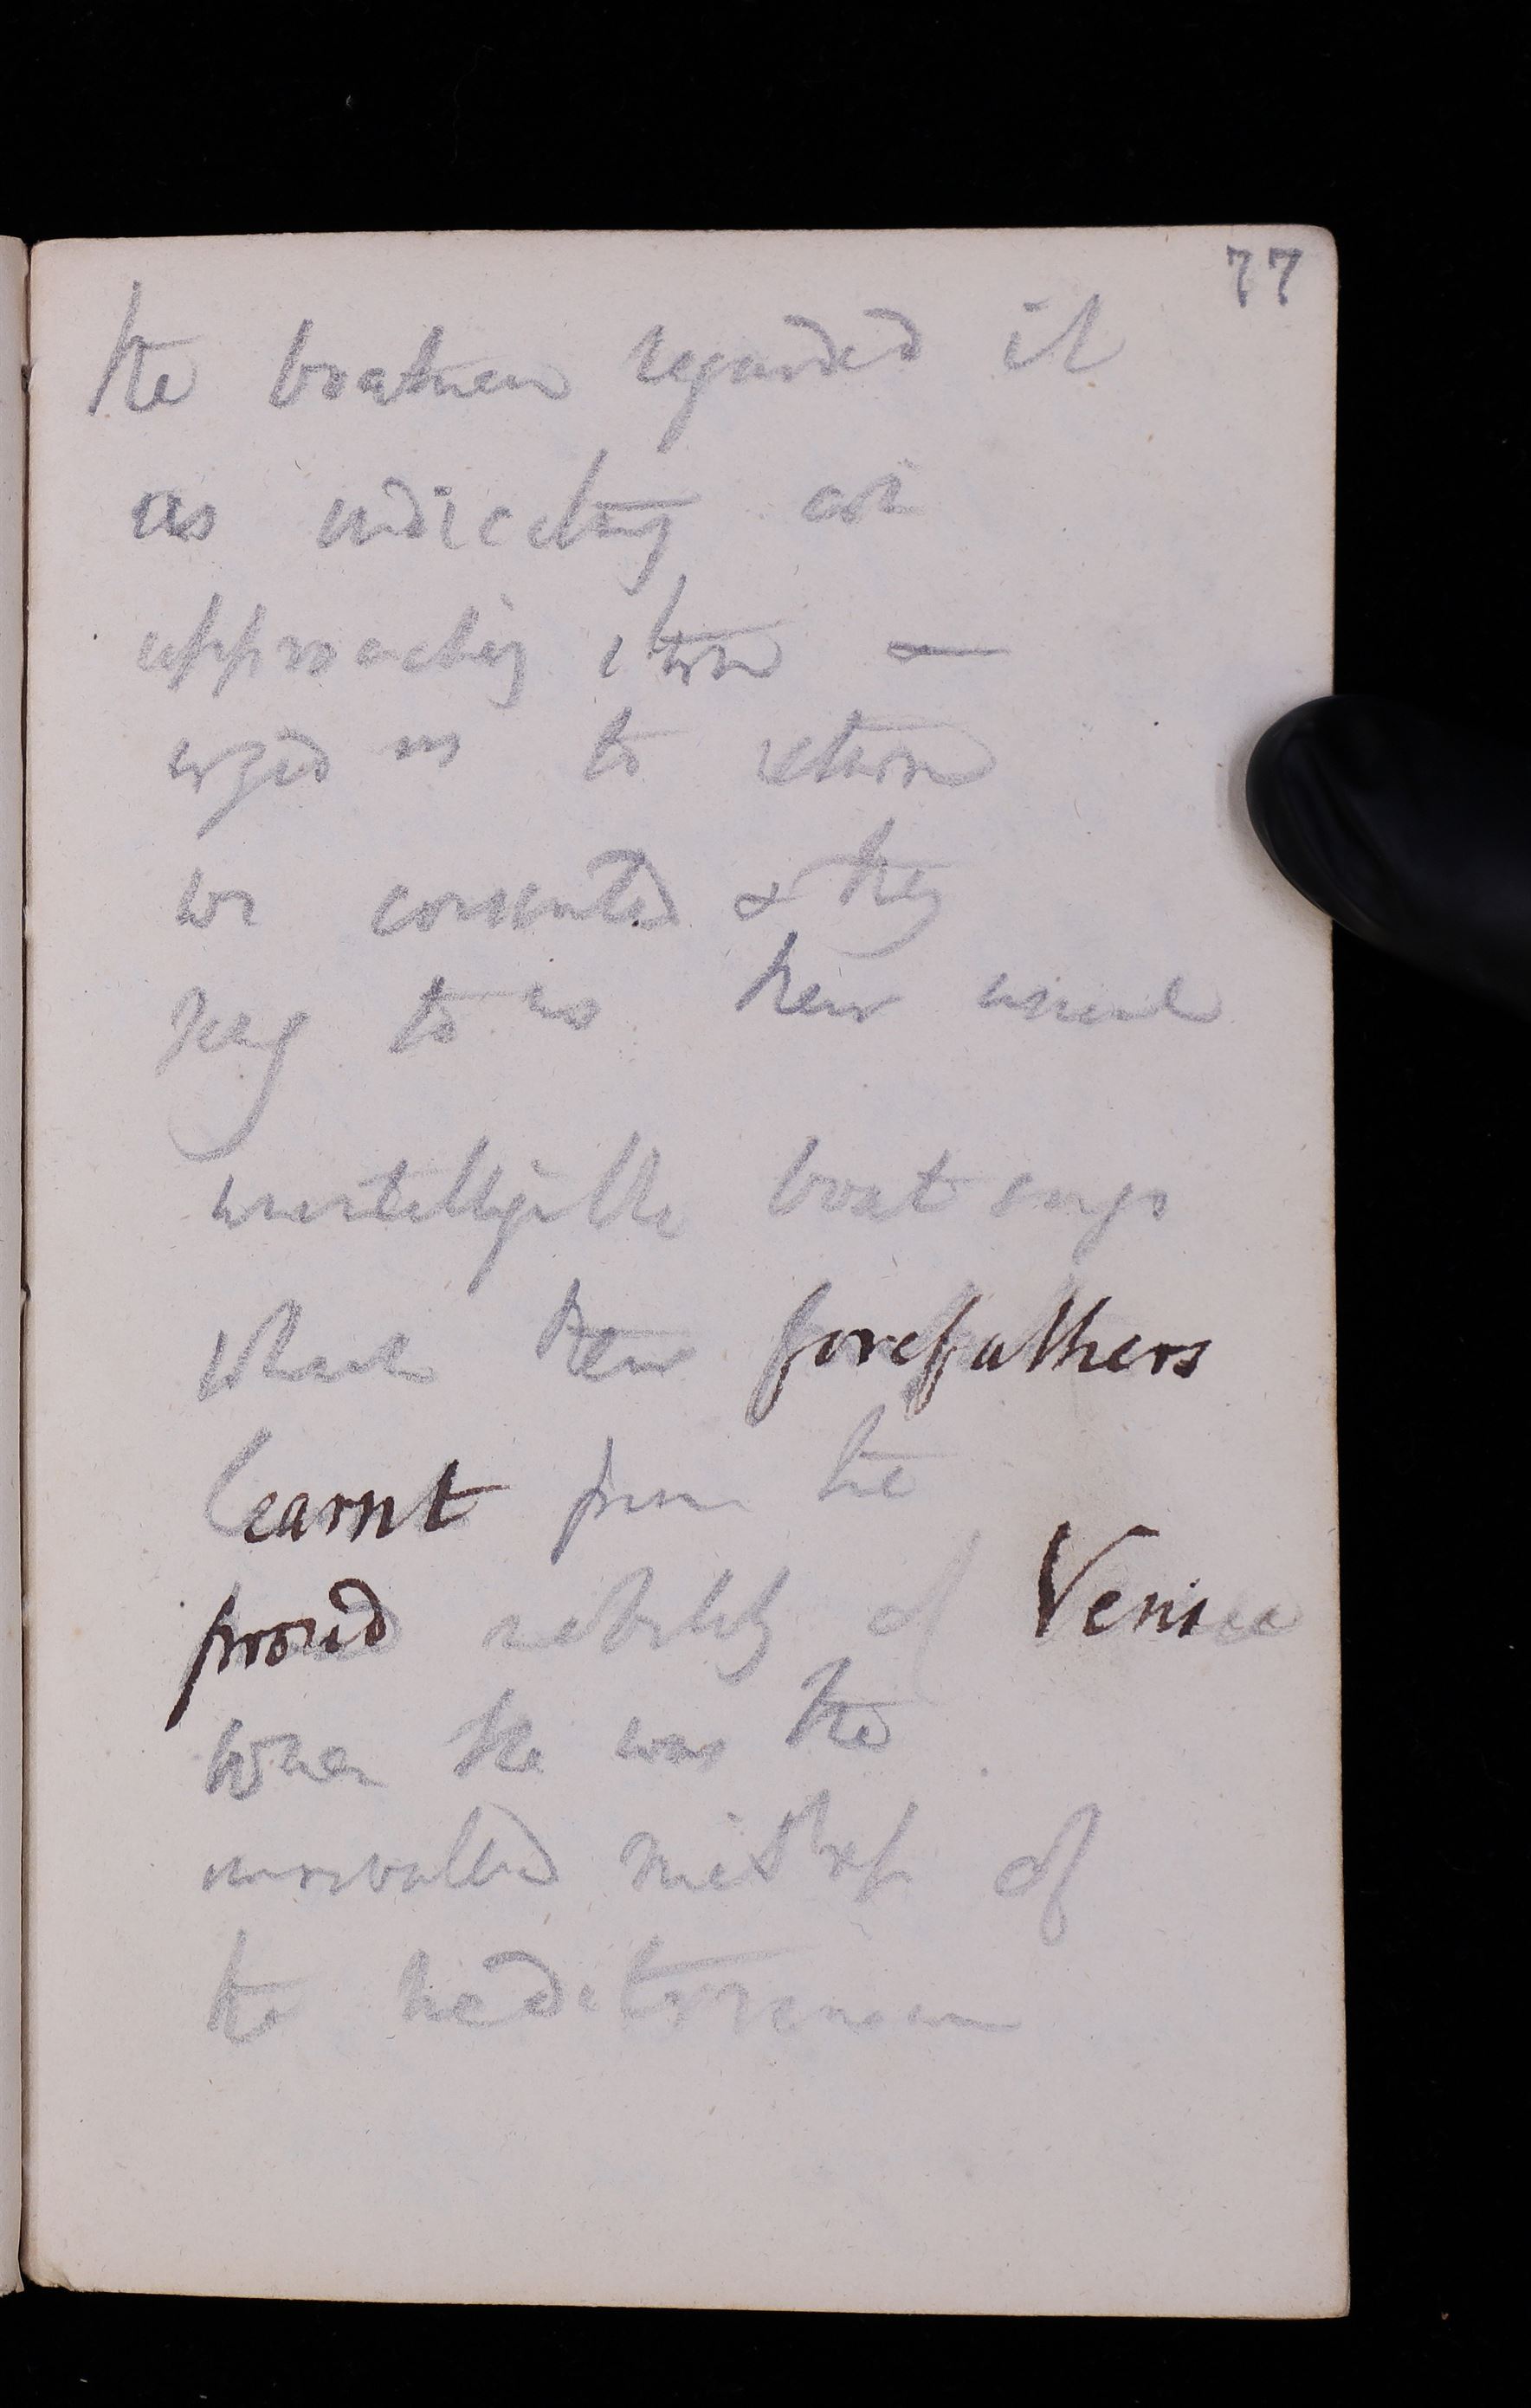 77
the boatmen regarded it
as indicating an
approaching storm —
urged us to return
we consented & they
sang to us their usual
unintelligible boat songs
which their forefathers
learnt from the
proud nobility of Venice
when she was the
unrivalled mistress of
the mediterranean